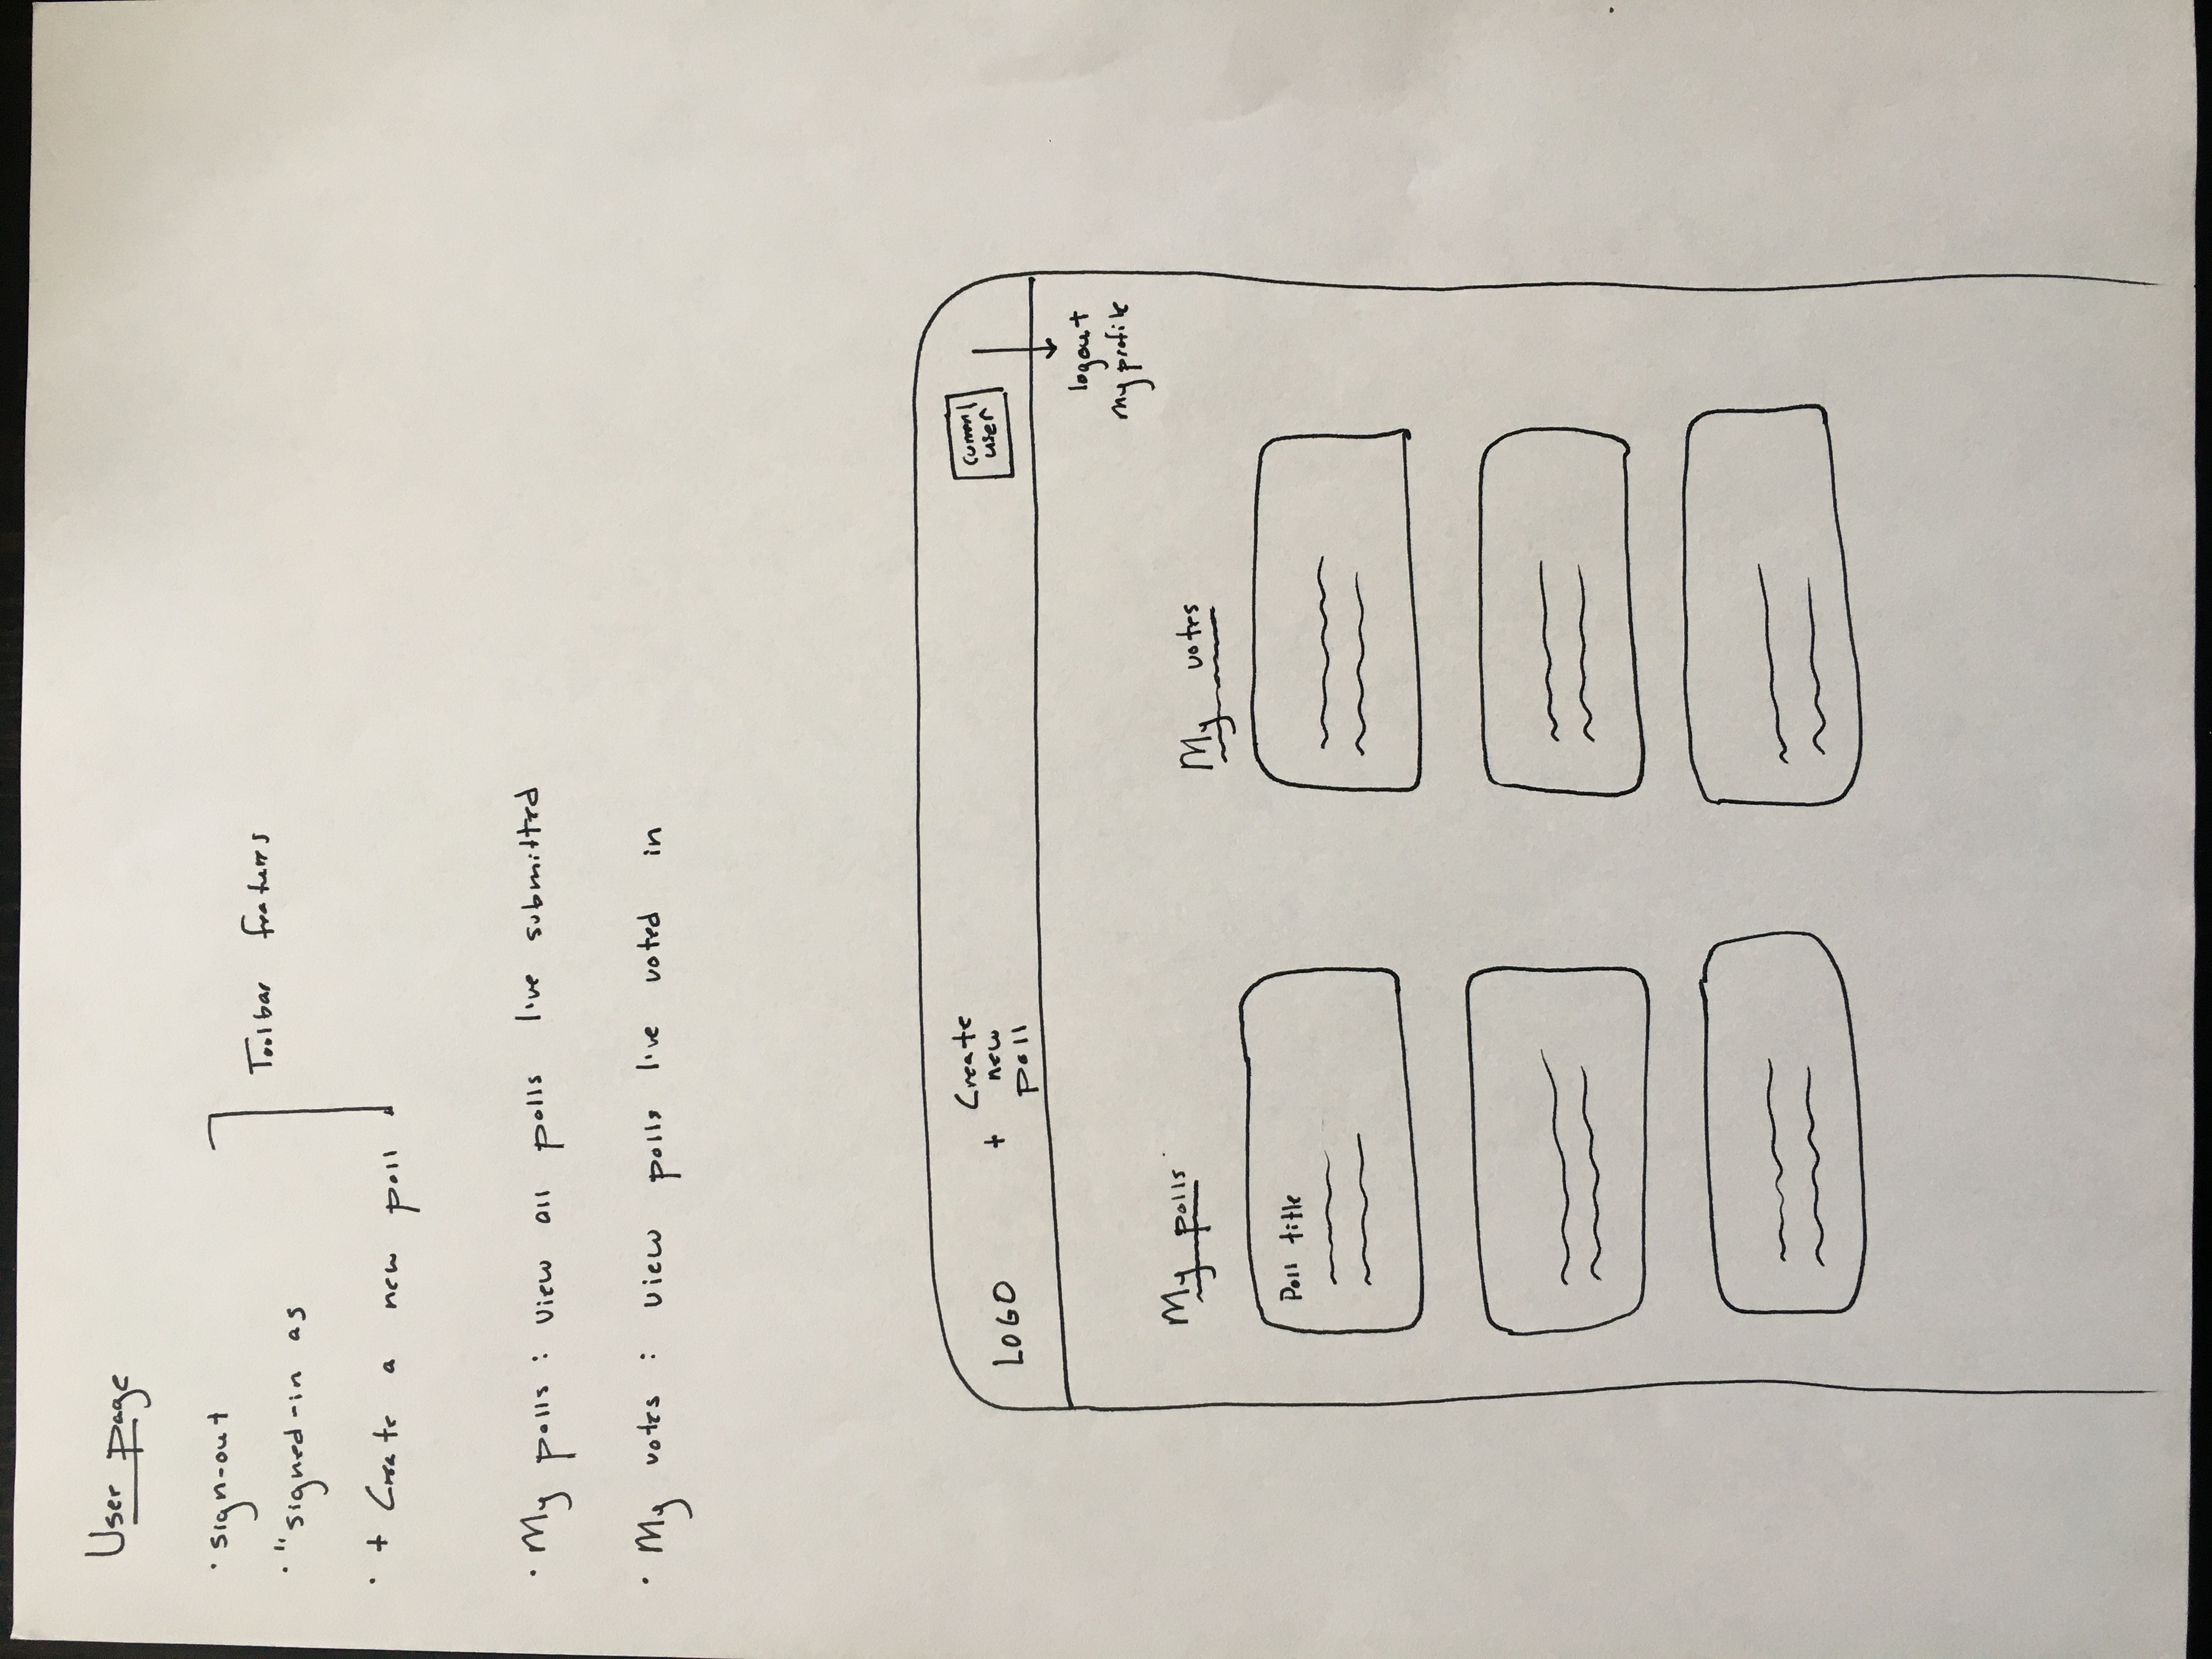 User page
· sign-out
· "signed-in as
· + Create a new poll
Toolbar features
· My polls : view all polls I've submitted
· My votes : view polls I've voted in
LOGO
+ Create
new
poll
current
user
logout
my profile
My polls
My votes
Poll title